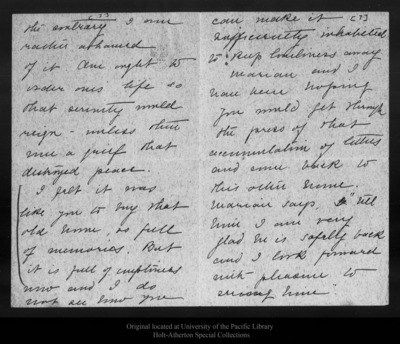 the contrary I am
rather ashamed
of it. One ought to
order ones life so
that serenity would
reign - unless there
were a grief that
destroyed peace.
I felt it was
like you to say that
old home, so full
of memories. But
it is full of emptiness
now and I do
not see how you
can make it
sufficiently inhabited
to keep loneliness away
Marian and I
have been hoping
you would get through
the press of that
accumulation of letters
and come back to
this other home.
Marian says, "
him I am very
glad he is safely back
and I look forward
with pleasure to
seeing him."
Original located at University of the Pacific Library
Holt-Atherton Special Collections